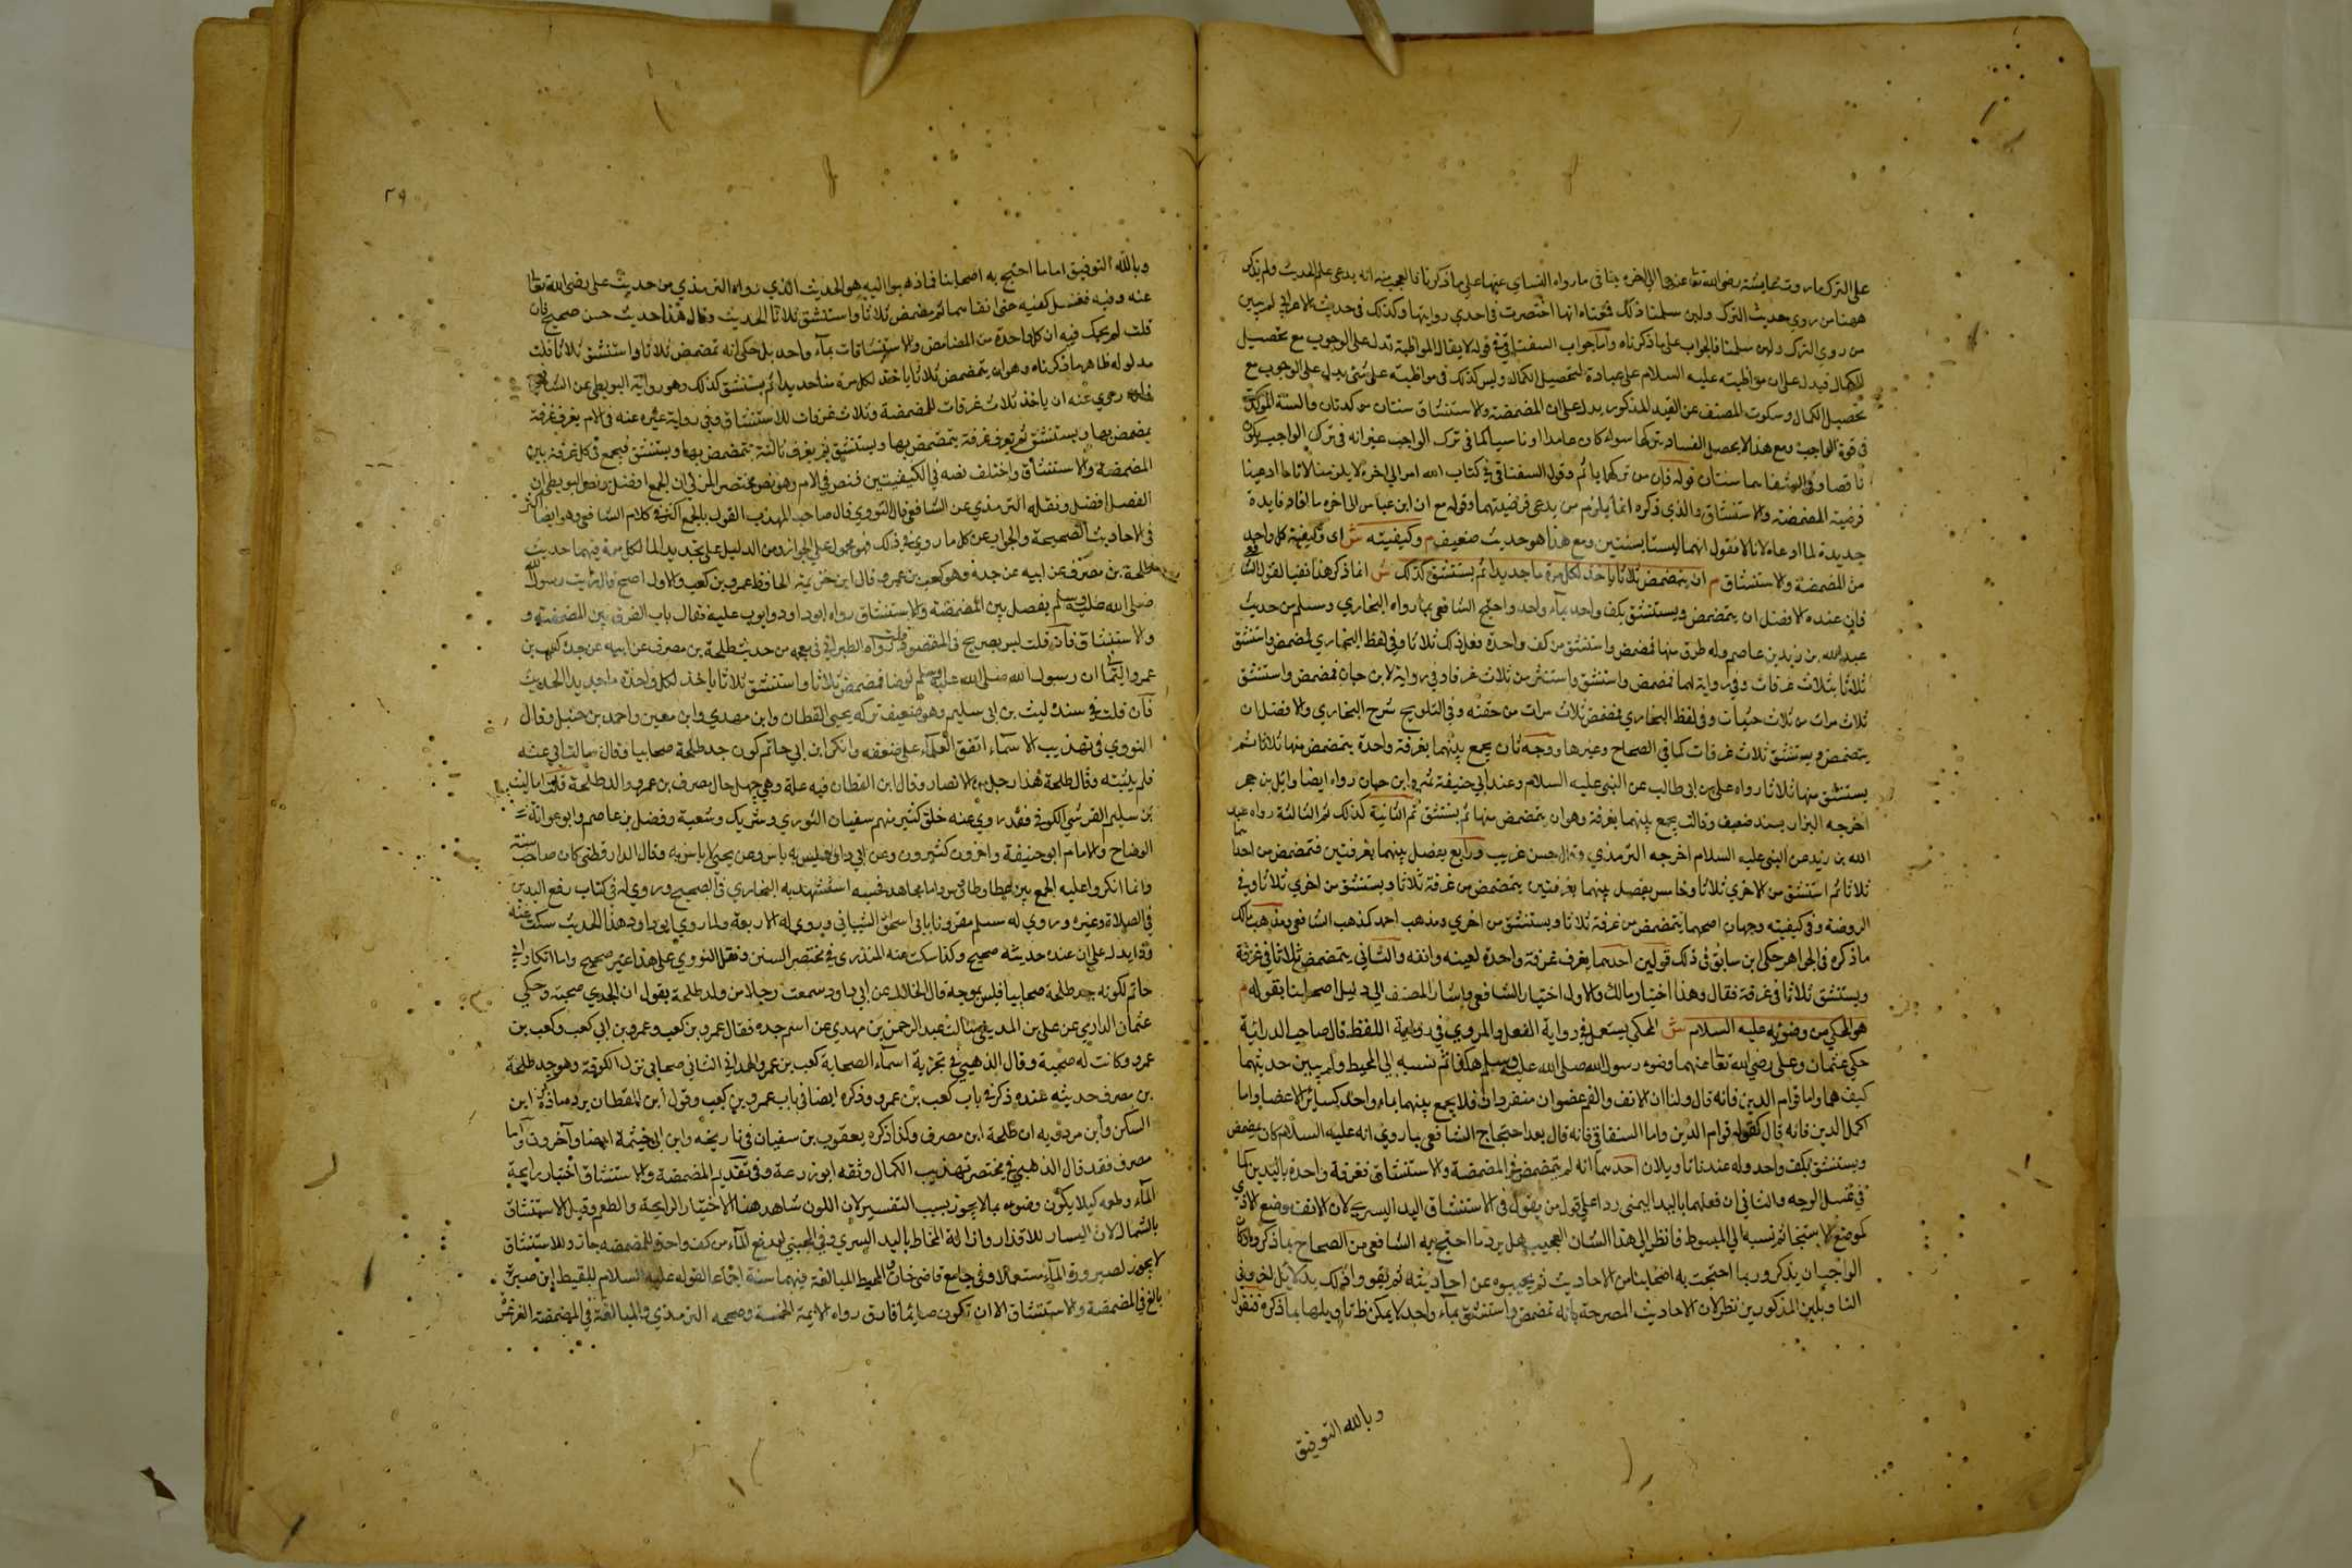 على الترك ما روت عائشة رضي الله تعالى عنها الى اخره ينافى ما رواه النساي عنها على ما ذكرنا فالعجب منه انه يدعى علم الحديث ولم يذكر
ههنا من روي حديث الترك ولين سلمنا ذلك فمعناه انها اختصرت في احدي روايتها وكذلك في حديث الاعرابي لم يبين
من روي الترك ولين سلمنا فالجواب على ما ذكرناه واما جواب السغناقي في قوله لا يقال المواظبة تدل على الوجوب مع تحصيل
الكمال فيدل على ان مواظبته عليه السلام على عبادة لتحصيل الكمال وليس كذلك في مواظبته على شي يدل على الوجوب مع
تحصيل الكمال وسكوت المصنف عن القيد المذكور يدل على ان المضمضة والاستنشاق سنتان موكدتان والسنة الموكدة
في قوة الواجب ومع هذا لا يحصل الفساد بتركها سواء كان عامدا او ناسيا كما في ترك الواجب غير انه في ترك الواجب يكون
ناقصا وفي انهما سنتان قوله فان من تركهما ياثم وقول السغناقي في كتاب الله امر الى اخره لا يلزمنا لانا ما ادعينا
فرضية المضمضة والاستنشاق والذي ذكره انما يلزم من يدعى فرضيتهما وقوله مع ان ابن عباس الى اخره ما افاد فايدة
جديدة لما ادعاه لانا لا نقول انهما ليستا بسنتين ومع هذا هو حديث ضعيف م وكيفيته ش اى وكيفية كل واحد
من المضمضة والاستنشاق م ان يتمضمض ثلاثا ياخذ لكل مرة ماء جديدا ثم يستنشق كذلك ش انما ذكر هذا نفيا لقول الشافعي
فان عنده الافضل ان يتمضمض ويستنشق بكف واحد بماء واحد واحتج الشافعى بما رواه البخاري ومسلم من حديث
عبد الله بن زيد بن عاصم وله طرق منها فمضمض واستنشق من كف واحدة فعل ذلك ثلاثا وفي لفظ البخاري فمضمض واستنشق
ثلاثا بثلاث غرفات وفي رواية لهما فمضمض واستنشق واستنثر من ثلاث غرفات وفي رواية لابن حبان فمضمض واستنشق
ثلاث مرات من ثلاث حفنات وفي لفظ البخاري فمضمض ثلاث مرات من حفنة وفي التلويح شرح البخاري والافضل ان
يتمضمض ويستنشق ثلاث غرفات كما في الصحاح وغيرها ووجه ثان يجمع بينهما بغرفة واحدة يتمضمض منها ثلاثا ثم
يستنشق منها ثلاثا رواه على بن ابى طالب عن النبى عليه السلام وعند ابي حنيفة وابن حبان رواه ايضا وائل بن حجر
اخرجه البزار بسند ضعيف وثالث يجمع بينهما بغرفة وهو ان يتمضمض منها ثم يستنشق ثم الثانية كذلك ثم الثالثة رواه عبد
الله بن زيد عن النبى عليه السلام اخرجه الترمذي وقال حسن غريب ورابع يفصل بينهما بغرفتين فتمضمض من احداهما
ثلاثا ثم استنشق من الاخري ثلاثا وخامس يفصل بينهما بغرفتين يتمضمض من غرفة ثلاثا ويستنشق من اخري ثلاثا وفي
الروضة وفي كيفيته وجهان اصحهما يتمضمض من غرفة ثلاثا ويستنشق من اخري ومذهب احمد كذهب الشافعى ومذهب مالك
ما ذكره في الجواهر حكى ابن سابق في ذلك قولين احدهما يغرف غرفة واحدة لفيه وانفه والثاني يتمضمض ثلاثا في غرفة
ويستنشق ثلاثا في غرفة فقال وهذا اختيار مالك والاول اختيار الشافعى واشار المصنف الى دليل اصحابنا بقوله م
هو المحكي من وضوئه عليه السلام ش المحكي يستعمل في رواية الفعل والمروي في رواية اللفظ قال صاحب الدراية
حكي عثمان وعلى رضي الله تعالى عنهما وضوء رسول الله صلى الله عليه وسلم هكذا ثم نسبه الى المحيط ولم يبين حديثهما
كيف هما واما قوام الدين فانه قال ولنا ان الانف والفم عضوان منفردان فلا يجمع بينهما بماء واحد كسائر الاعضا واما
اكمل الدين فانه قال كقول قوام الدين واما السغناقي فانه قال بعد احتجاج الشافعى بما روي انه عليه السلام كان يتمضمض
ويستنشق بكف واحد وله عندنا تاويلان احدهما انه لم يتمضمض في المضمضة والاستنشاق بغرفة واحدة باليدين كما
في غسل الوجه والثاني ان فعلهما باليد اليمنى ردا على قول من يقول في الاستنشاق اليد اليسري لان الانف موضع الاذي
كموضع الاستنجا ثم نسبه الى المبسوط فانظر الى هذا الشان العجيب هل يرد ما احتج به الشافعى من الصحاح بما ذكروا وكان
الواجب ان يذكروا ما احتجت به اصحابنا من الاحاديث ثم يجيبوه عن احاديثه ثم يقووا ذلك بدلائل اخر وفي
التاويلين المذكورين نظر لان الاحاديث المصرحة بانه تمضمض واستنشق بماء واحد لا يمكن تاويلها بما ذكره فنقول
وبالله التوفيق
٢٩
وبالله التوفيق اما ما احتج به اصحابنا فيما ذهبوا اليه هو الحديث الذي رواه الترمذي من حديث على رضي الله تعالى
عنه وفيه فغسل كفيه حتى انقاهما ثم مضمض ثلاثا واستنشق ثلاثا الحديث وقال هذا حديث حسن صحيح فان
قلت لم يحك فيه ان كل واحدة من المضامض والاستنشاقات بماء واحد بل حكى انه تمضمض ثلاثا واستنشق ثلاثا قلت
مدلوله ظاهرا ما ذكرناه وهو ان يتمضمض ثلاثا ياخذ لكل مرة ماء جديدا ثم يستنشق كذلك وهو رواية البويطي عن الشافعي
فانه روي عنه ان ياخذ ثلاث غرفات للمضمضة وثلاث غرفات للاستنشاق وفي رواية غيره عنه في الام يغرف غرفة
يتمضمض بها ويستنشق ثم يغرف غرفة يتمضمض بها ويستنشق ثم يغرف ثالثة يتمضمض بها ويستنشق فيجمع في كل غرفة بين
المضمضة والاستنشاق واختلف نصه في الكيفيتين فنص في الام وهو نص مختصر المزني ان الجمع افضل ونص البويطي ان
الفصل افضل ونقله الترمذي عن الشافعي قال النووي قال صاحب المهذب القول بالجمع اكثر في كلام الشافعى وهو ايضا اكثر
في الاحاديث الصحيحة والجواب عن كل ما روي في ذلك فهو محمول على الجواز ومن الدليل على تجديد الماء لكل مرة فيهما حديث
طلحة بن مصرف عن ابيه عن جده وهو كعب بن عمرو قال ابن خزيمة الحافظ عمرو بن كعب والاول اصح قال رايت رسول الله
صلى الله عليه وسلم يفصل بين المضمضة والاستنشاق رواه ابو داود وبوب عليه فقال باب الفرق بين المضمضة و
والاستنشاق فان قلت ليس بصريح في المقصود قلت رواه الطبراني في معجمه من حديث طلحة بن مصرف عن ابيه عن جده كعب بن
عمرو اليمامي ان رسول الله صلى الله عليه وسلم توضا فمضمض ثلاثا واستنشق ثلاثا ياخذ لكل واحدة ماء جديدا الحديث
فان قلت في سنده ليث بن ابى سليم وهو ضعيف تركه يحيى القطان وابن مهدي وابن معين واحمد بن حنبل وقال
النووي في تهذيب الاسماء اتفق العلماء على ضعفه وانكر ابن ابي حاتم كون جد طلحة صحابيا وقال سالت ابي عنه
فلم يثبته وقال طلحة هذا رجل من الانصار وقال ابن القطان فيه علة وهي جهل حال مصرف بن عمرو والد طلحة قلت اما ليث
بن سليم القرشي الكوفي فقد روي عنه خلق كثير منهم سفيان الثوري وشريك وشعبة وفضل بن عاصم وابو عوانة
الوضاح والامام ابو حنيفة واخرون كثيرون وعن ابي داود ليس به باس وعن يحيى لا باس به وقال الدارقطنى كان صاحب سنة
وانما انكروا عليه الجمع بين عطا وطاوس ومجاهد فحسبه استشهد به البخاري في الصحيح وروي له في كتاب رفع اليدين
في الصلاة وغيره وروي له مسلم مقرونا بابى اسحق الشيبانى وروي له الاربعة ولما روي ابو داود هذا الحديث سكت عنه
وذا يدل على ان عنده حديثه صحيح وكذا سكت عنه المنذري في مختصر السنن ونقل النووي على هذا غير صحيح واما انكار ابي
حاتم لكونه جد طلحة صحابيا فليس بموجه قال الخلال عن ابي داود سمعت رجلا من ولد طلحة يقول ان لجدي صحبة وحكى
عثمان الدارمي عن على بن المديني سالت عبد الرحمن بن مهدي عن اسم جده فقال عمرو بن كعب وعمرو بن ابي كعب وكعب بن
عمرو وكانت له صحبة وقال الذهبي في تجريد اسماء الصحابة كعب بن عمرو الهمداني الثاني صحابى نزل الكوفة وهو جد طلحة
بن مصرف حديثه عنده ذكره في باب كعب بن عمرو وذكره ايضا في باب عمرو بن كعب وقول ابن القطان يرده ما ذكره ابن
السكن وابن مردويه ان طلحة ابن مصرف وكذا ذكره يعقوب بن سفيان في تاريخه وابن ابى خيثمة ايضا وآخرون واما
مصرف فقد قال الذهبي في مختصر تهذيب الكمال وثقه ابو زرعة وفي تقديم المضمضة والاستنشاق اختبار رايحة
الماء وطعمه كيلا يكون وضوءه بما لا يجوز بسبب التغير لان اللون شاهد هنا الاختبار الرايحة والطعم وقيل الاستنشاق
بالشمال لان اليسار للاقذار وازالة المخاط باليد اليسري وفي المجتبى لو رفع الماء من كف واحدة للمضمضة جاز وللاستنشاق
لا يجوز لصيرورة الماء مستعملا وفي جامع قاضى خان والمحيط المبالغة فيهما سنة اجماعا لقوله عليه السلام للقيط ابن صبرة
بالغ في المضمضة والاستنشاق الا ان تكون صايما فارق رواه الايمة الخمسة وصححه الترمذي والمبالغة في المضمضة الغرغرة